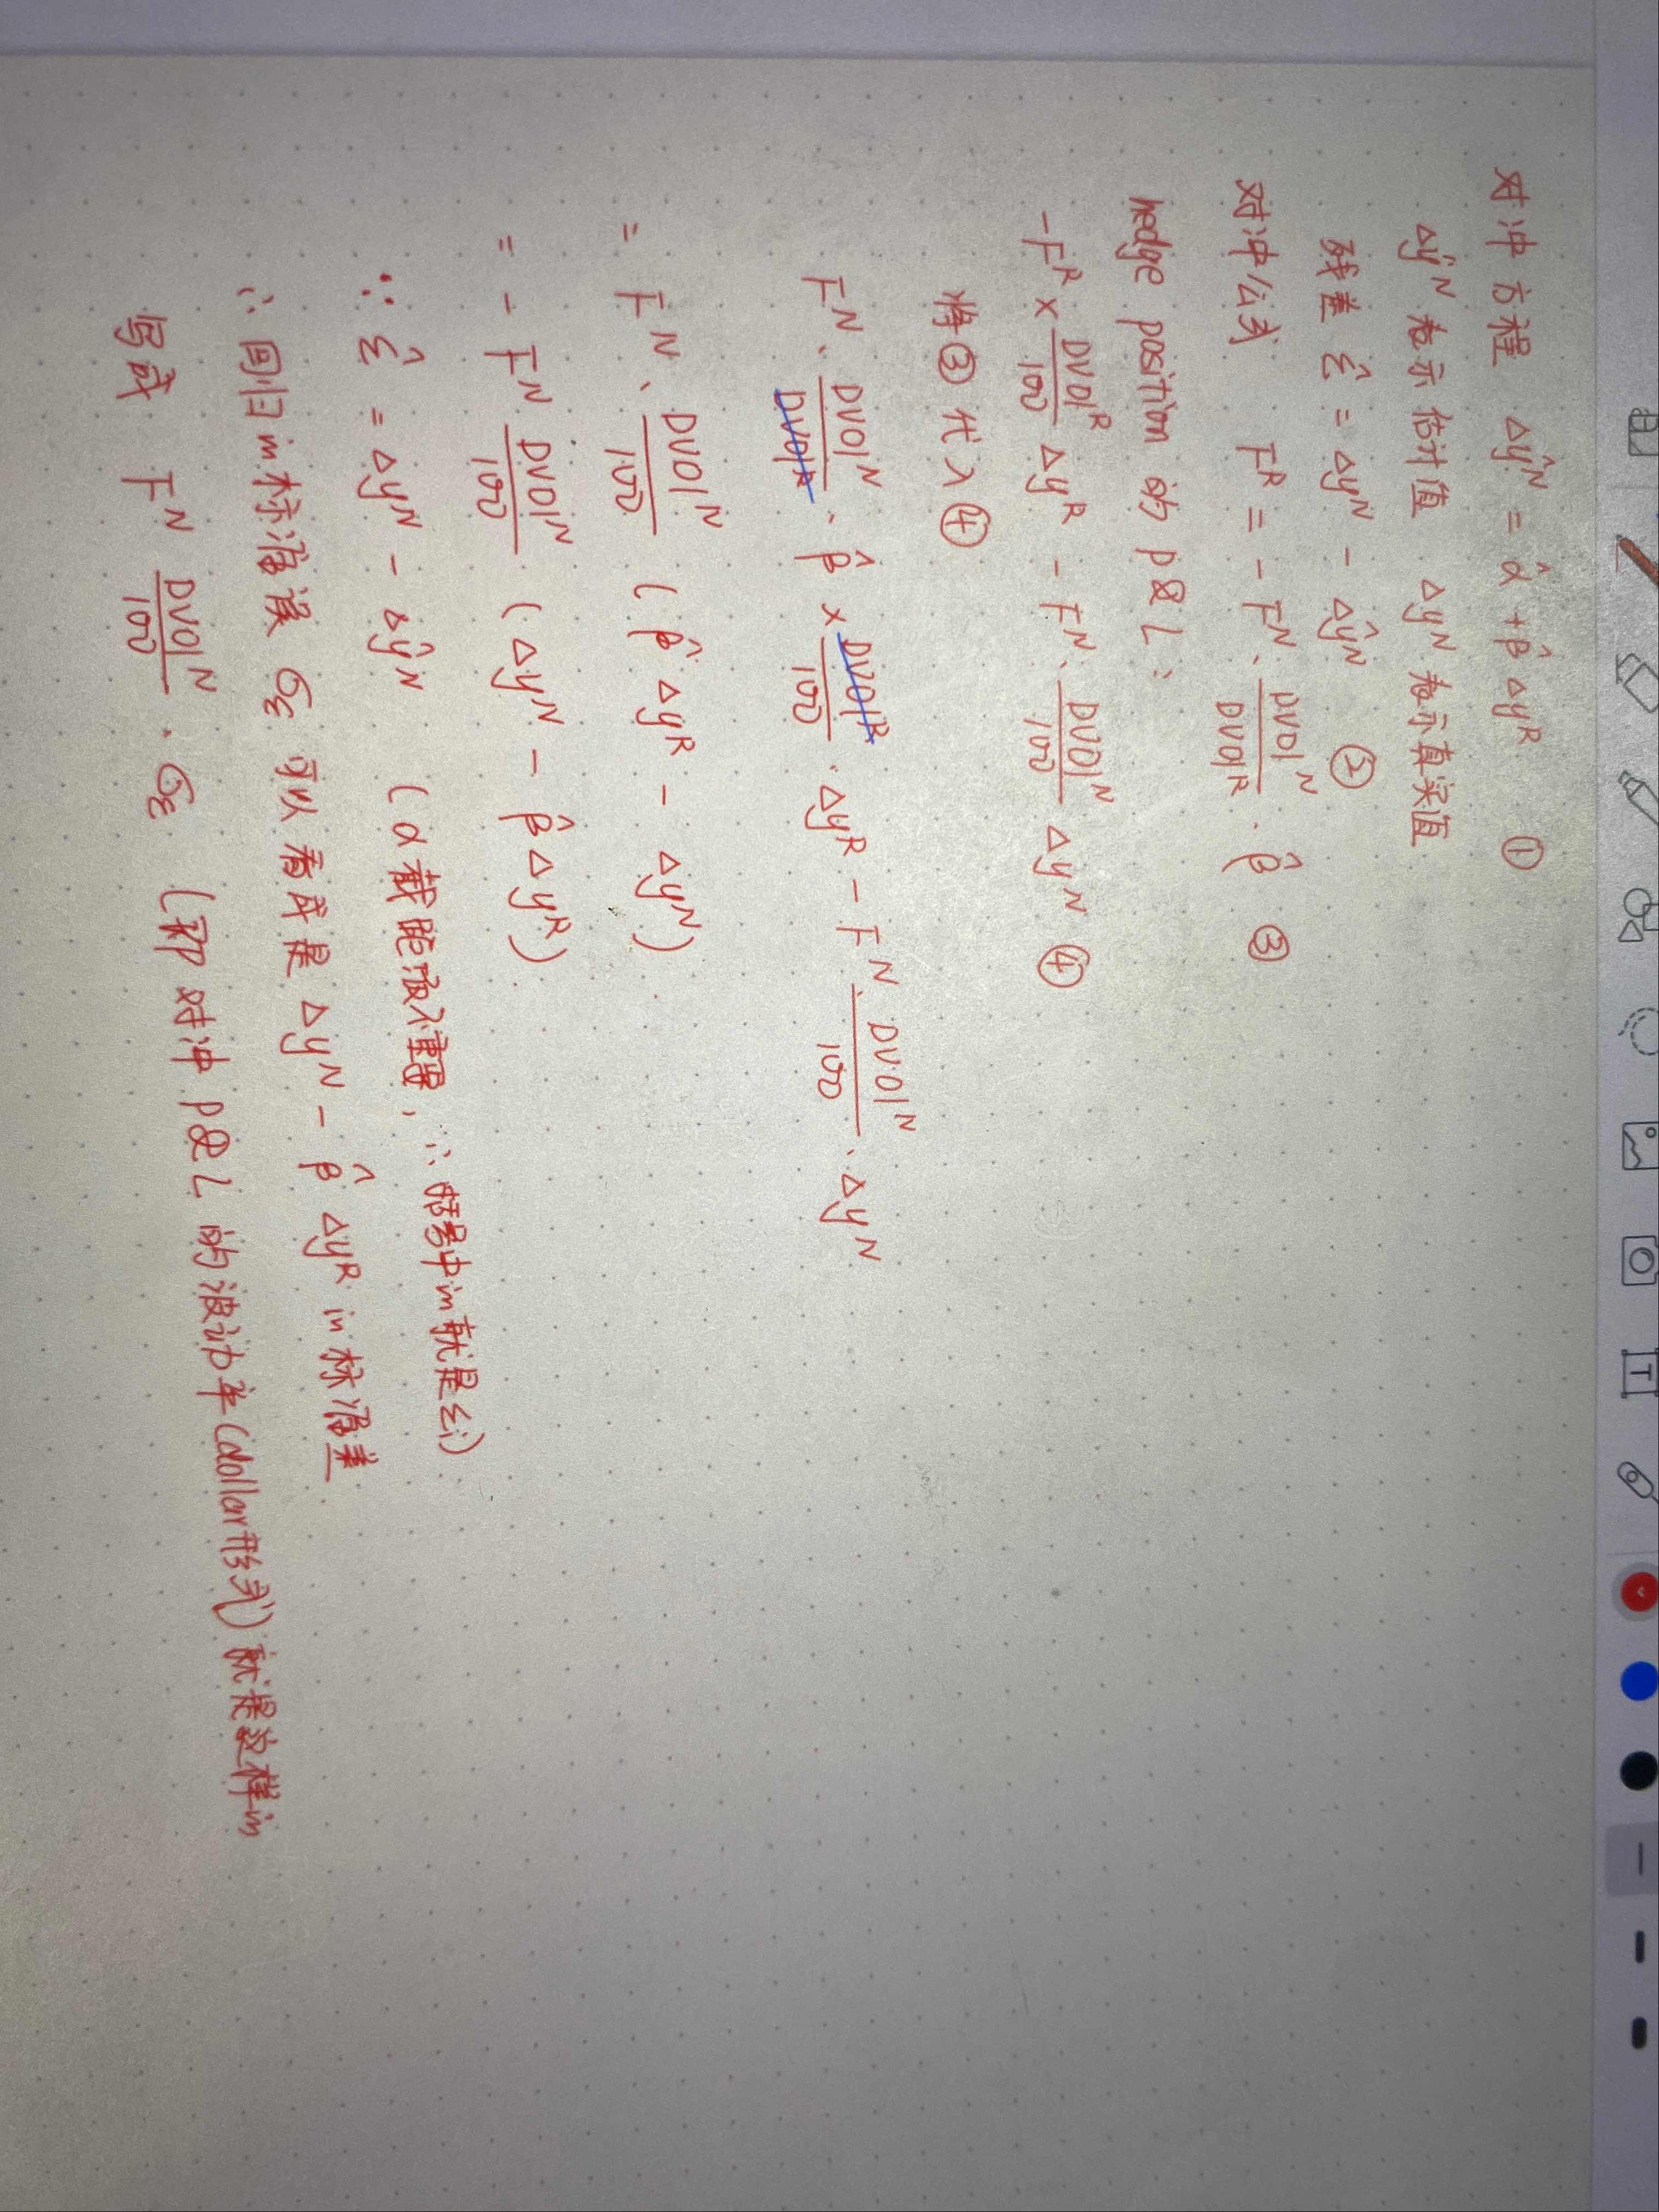 对冲方程 Δŷᴺ = α̂ + β̂ Δyᴿ ①
Δŷᴺ 表示估计值 Δyᴺ 表示真实值
残差 ε̂ = Δyᴺ - Δŷᴺ ②
对冲公式 Fᴿ = - Fᴺ · DV01ᴺ/DV01ᴿ · β̂ ③
hedge position 的 P&L :
-Fᴿ × DV01ᴿ/100 Δyᴿ - Fᴺ · DV01ᴺ/100 Δyᴺ ④
将③代入④
Fᴺ · DV01ᴺ/DV01ᴿ · β̂ × DV01ᴿ/100 · Δyᴿ - Fᴺ · DV01ᴺ/100 · Δyᴺ
= Fᴺ · DV01ᴺ/100 (β̂ Δyᴿ - Δyᴺ)
= - Fᴺ DV01ᴺ/100 (Δyᴺ - β̂ Δyᴿ)
∵ ε̂ = Δyᴺ - Δŷᴺ (α 截距项 ∴ 括号中的就是 εi)
∴ 回归的标准误 σε 可以看成是 Δyᴺ - β̂ Δyᴿ 的标准差
写成 Fᴺ DV01ᴺ/100 · σε (即对冲 P&L 的波动率(dollar形式)就是这样的
T